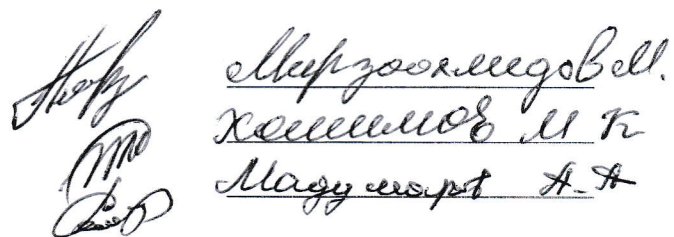 Мирзоохмедов М.
Хошимов М К
Мадумаров А.А